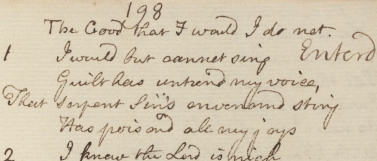 198
The Good that I would I do not.
1 I would but cannot sing Enterd
Guilt has untun'd my voice,
That serpent Sin's envenomd sting
Has poisond all my joys
2 I know the Lord is nigh